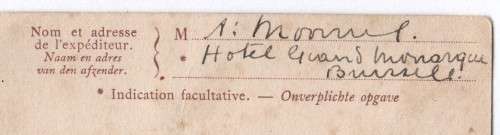 Nom et adresse
de l'expéditeur.
Naam en adres
van den afzender.
M
* Hotel Grand Monarque
Brussels.
* Indication facultative. — Onverplichte opgave